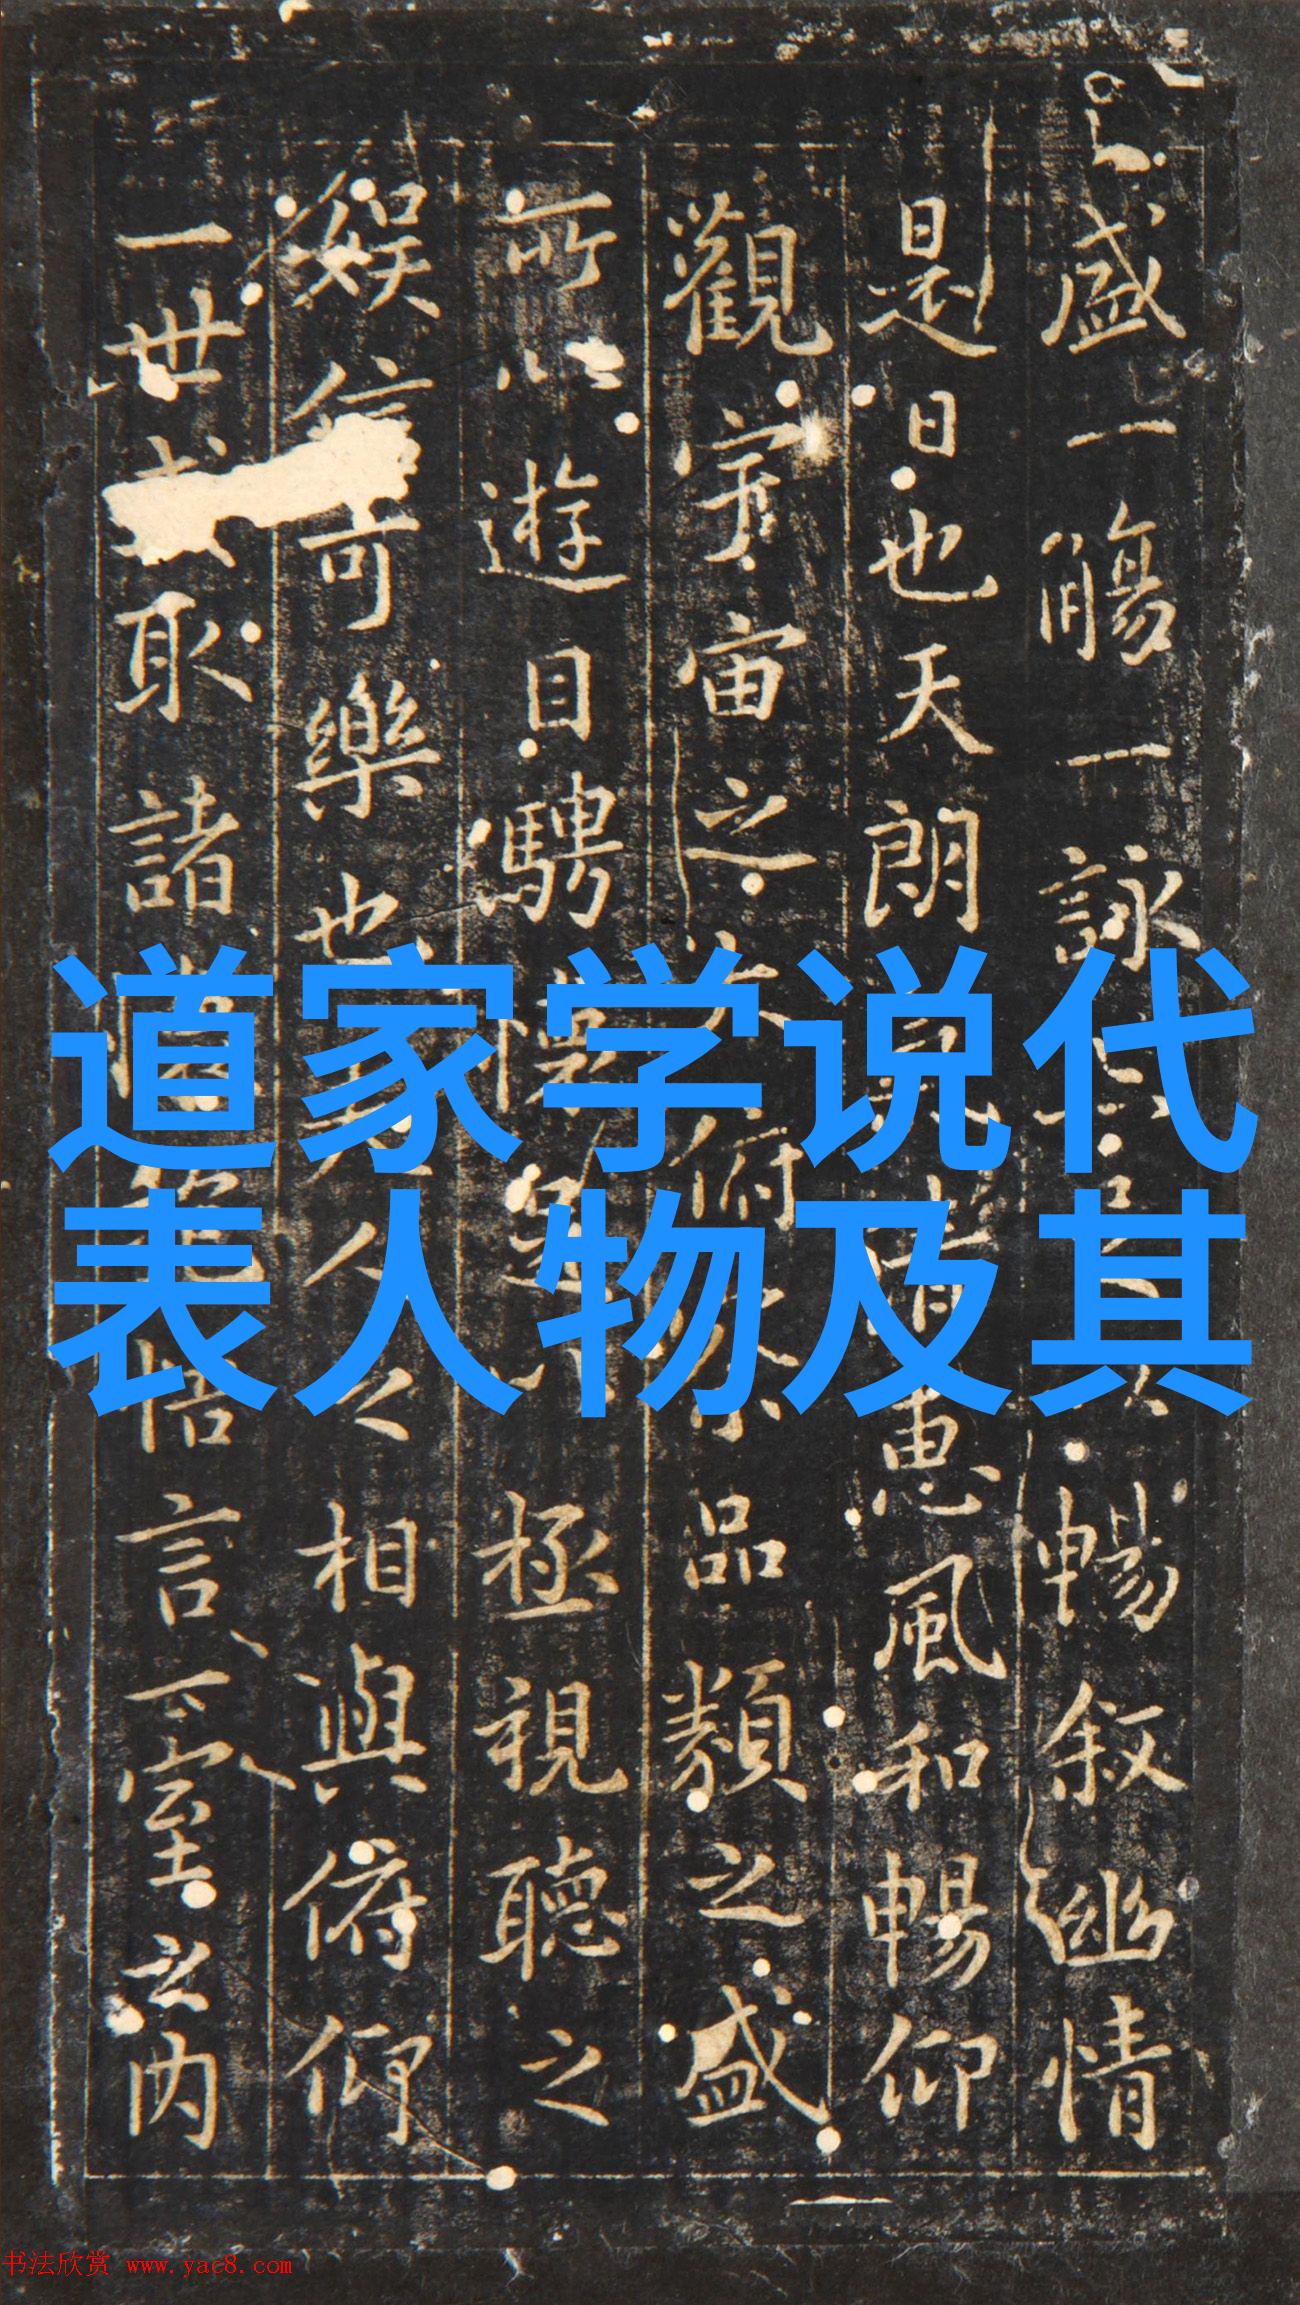 盛一觴一詠
暢叙幽情
是日也天朗
惠風和暢仰
觀宇宙之大俯
品類之盛
所以遊目騁懷
極視聽之
娱信可樂也夫人之相與俯仰
一世或取諸
悟言一室之内
道家学说代
表人物及其
书法欣赏 www.yac8.com